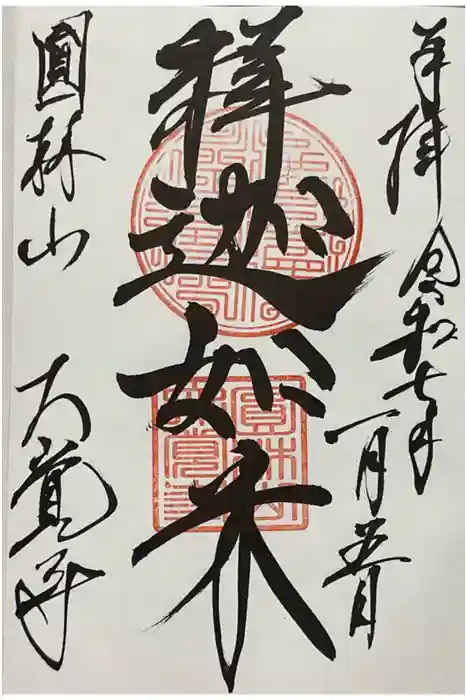 奉拝
令和七年
一月五日
釋迦如来
圓林山
覺寺